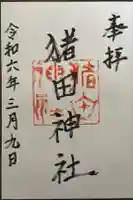 奉拝
猪田神社
令和六年三月九日